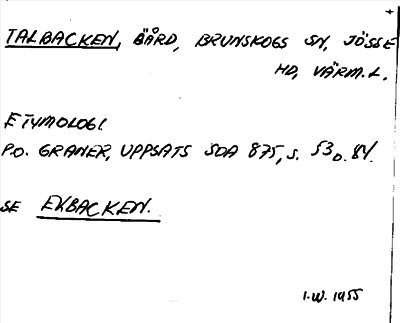 TALBACKEN, BÄÅRD, BRUNSKOGS SN, JÖSSE
HD, VÄRM. L.
ETYMOLOGI.
P.O. GRANER, UPPSATS SOA 875, S. 53 o. 84.
SE EKBACKEN.
I.W. 1955